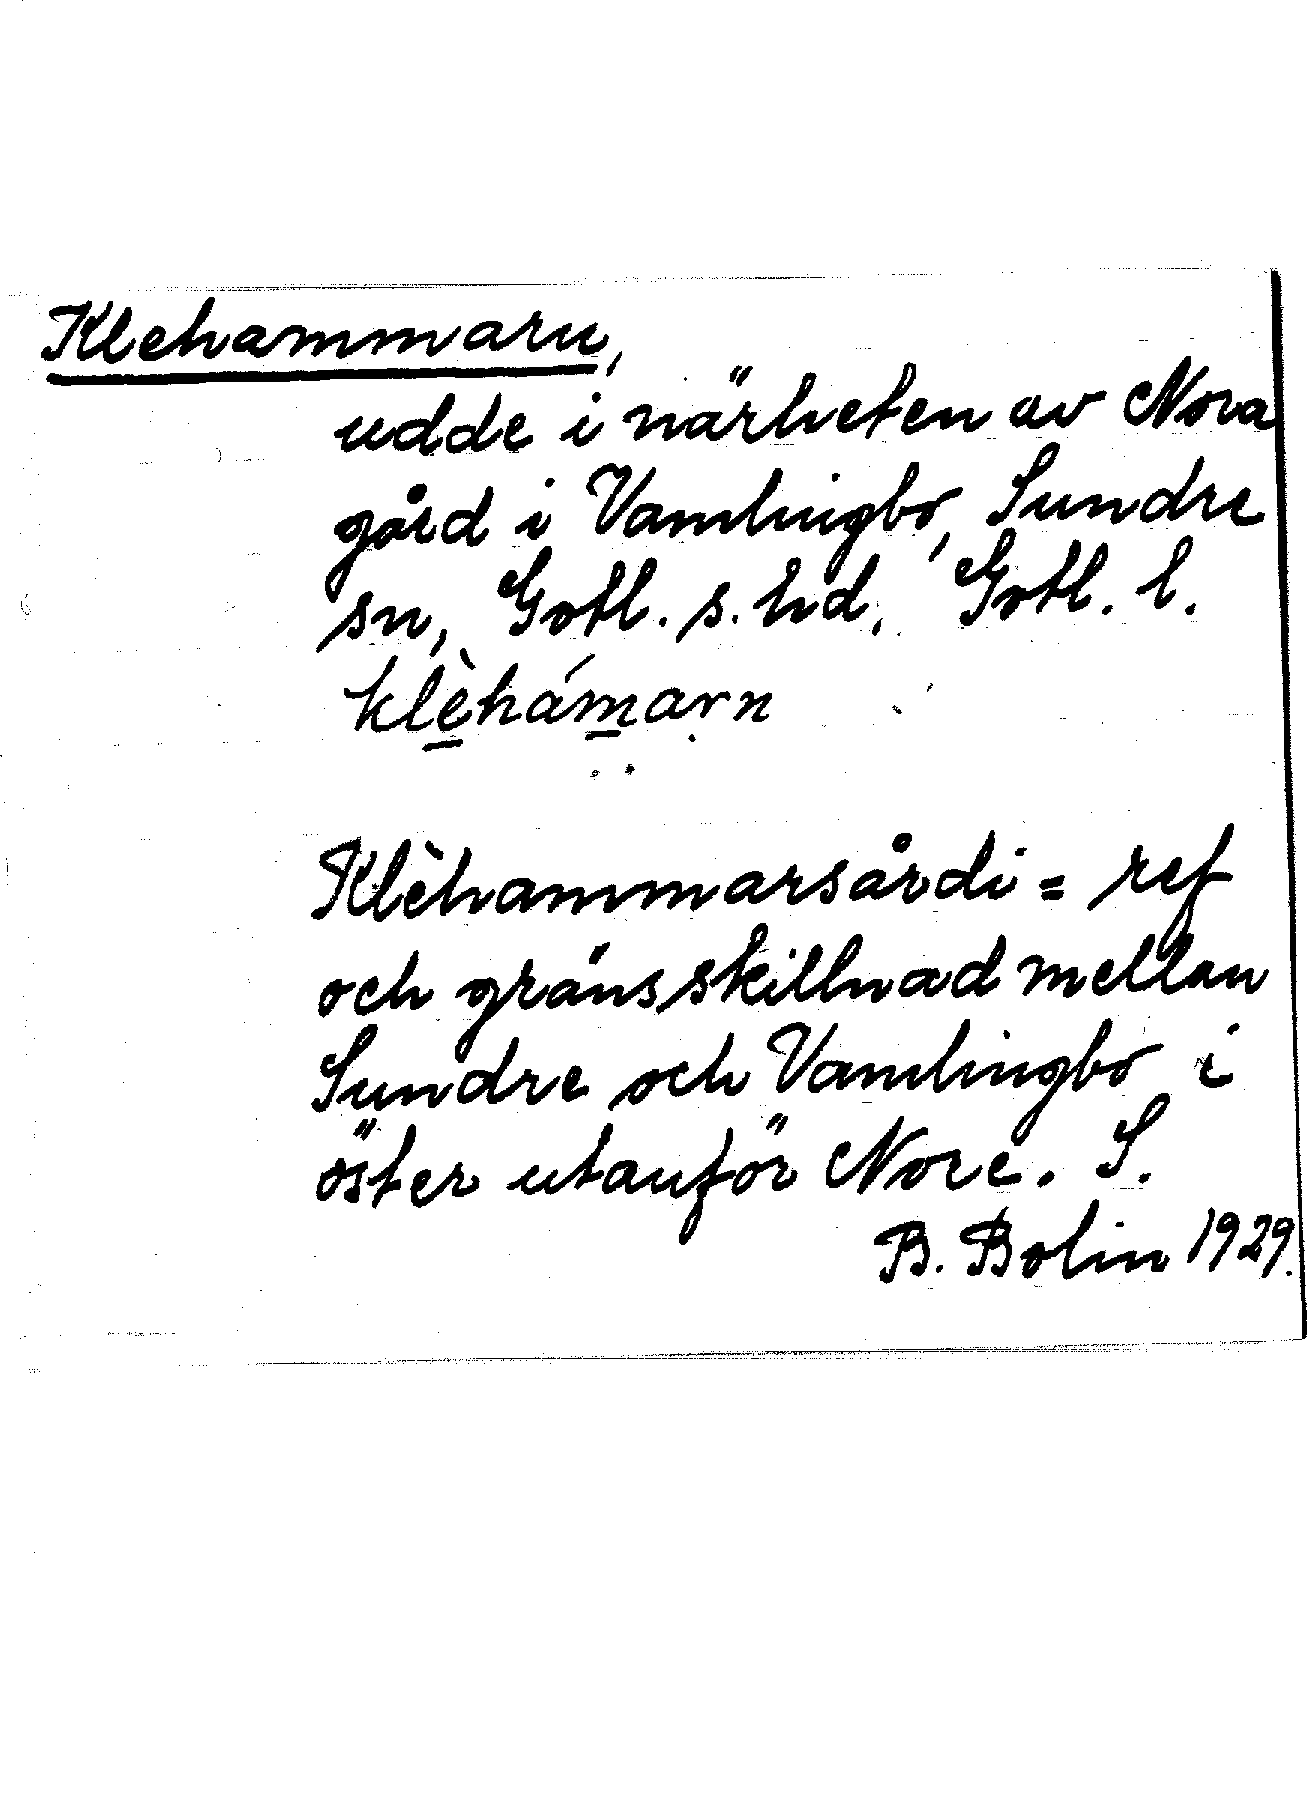 Klehammarn,
udde i närheten av Nora
gård i Vamlingbo, Sundre
sn, Gotl. s. hd, Gotl. l.
klèhámarn
Klèhammarsårdi = ref
och gränsskillnad mellan
Sundre och Vamlingbo i
öster utanför Nore. S.
B. Bolin 1929.